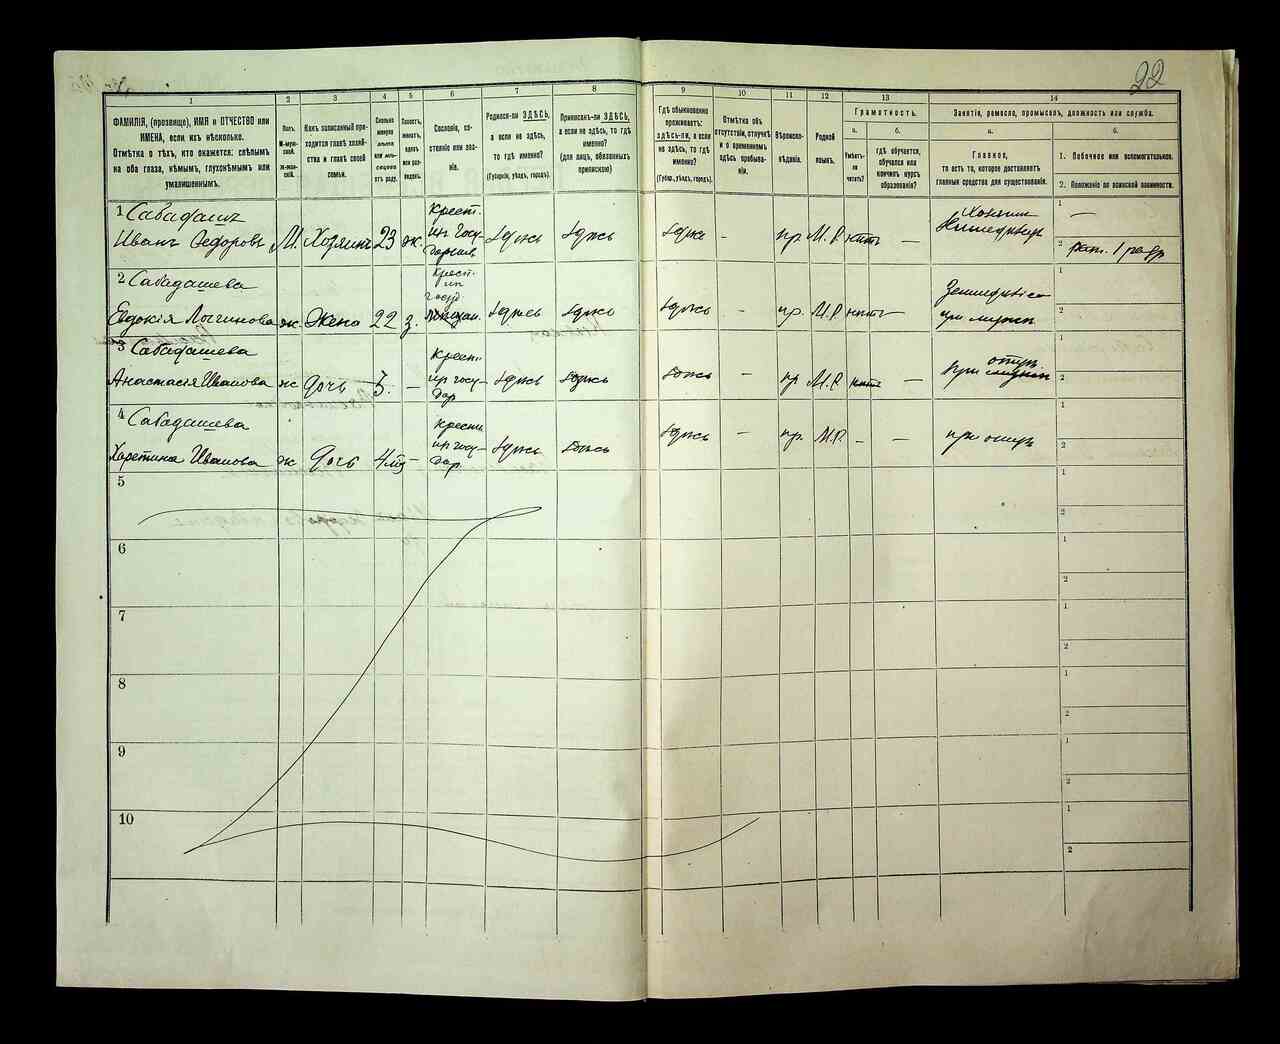 22
1
2
3
4
5
6
7
8
9
10
11
12
13
14
ФАМИЛІЯ, (прозвище), ИМЯ и ОТЧЕСТВО или
ИМЕНА, если ихъ нѣсколько.
Отмѣтка о тѣхъ, кто окажется: слѣпымъ
на оба глаза, нѣмымъ, глухонѣмымъ или
умалишеннымъ.
Полъ.
М-муж-
ской.
Ж-жен-
скій.
Какъ записанный при-
ходится главѣ хозяй-
ства и главѣ своей
семьи.
Сколько
минуло
лѣтъ
или мѣ-
сяцевъ
отъ роду.
Холостъ,
женатъ,
вдовъ
или раз-
веденъ.
Сословіе, со-
стояніе или зва-
ніе.
Родился-ли ЗДѢСЬ,
а если не здѣсь,
то гдѣ именно?
(Губернія, уѣздъ, городъ).
Приписанъ-ли ЗДѢСЬ,
а если не здѣсь, то гдѣ
именно?
(для лицъ, обязанныхъ
припискою)
Гдѣ обыкновенно
проживаетъ:
здѣсь-ли, а если
не здѣсь, то гдѣ
именно?
(Губер., уѣздъ, городъ).
Отмѣтка объ
отсутствіи, отлучкѣ
и о временномъ
здѣсь пребыва-
ніи.
Вѣроиспо-
вѣданіе.
Родной
языкъ.
Грамотность.
а.
б.
Умѣетъ-
ли
читать?
гдѣ обучается,
обучался или
кончилъ курсъ
образованія?
Занятія, ремесло, промыселъ, должность или служба.
а.
б.
Главное,
то есть то, которое доставляетъ
главныя средства для существованія.
1. Побочное или вспомогательное.
2. Положеніе по воинской повинности.
1 Сабадашъ
Иванъ Федоровъ М. Хозяинъ 23 ж. Крест. изъ госу- здѣсь здѣсь здѣсь - пр М.Р. нѣтъ — Хозяинъ
1 —
2
2 Сабадашева
Евдокія жс. Жена 22 з. Крест. здѣсь здѣсь здѣсь - пр. М.Р. нѣтъ
при мужѣ
1
2
3 Сабадашева
Анастасія Иванова ж дочь 3. — Крест. изъ госу- дар здѣсь здѣсь здѣсь — пр М.Р. нѣтъ — при отцѣ
1
2
4 Сабадашева
Иванова ж дочь 4 - крест. изъ госу- дар. здѣсь здѣсь здѣсь — пр. М.Р. - — при отцѣ
1
2
5
1
2
6
1
2
7
1
2
8
1
2
9
1
2
10
1
2